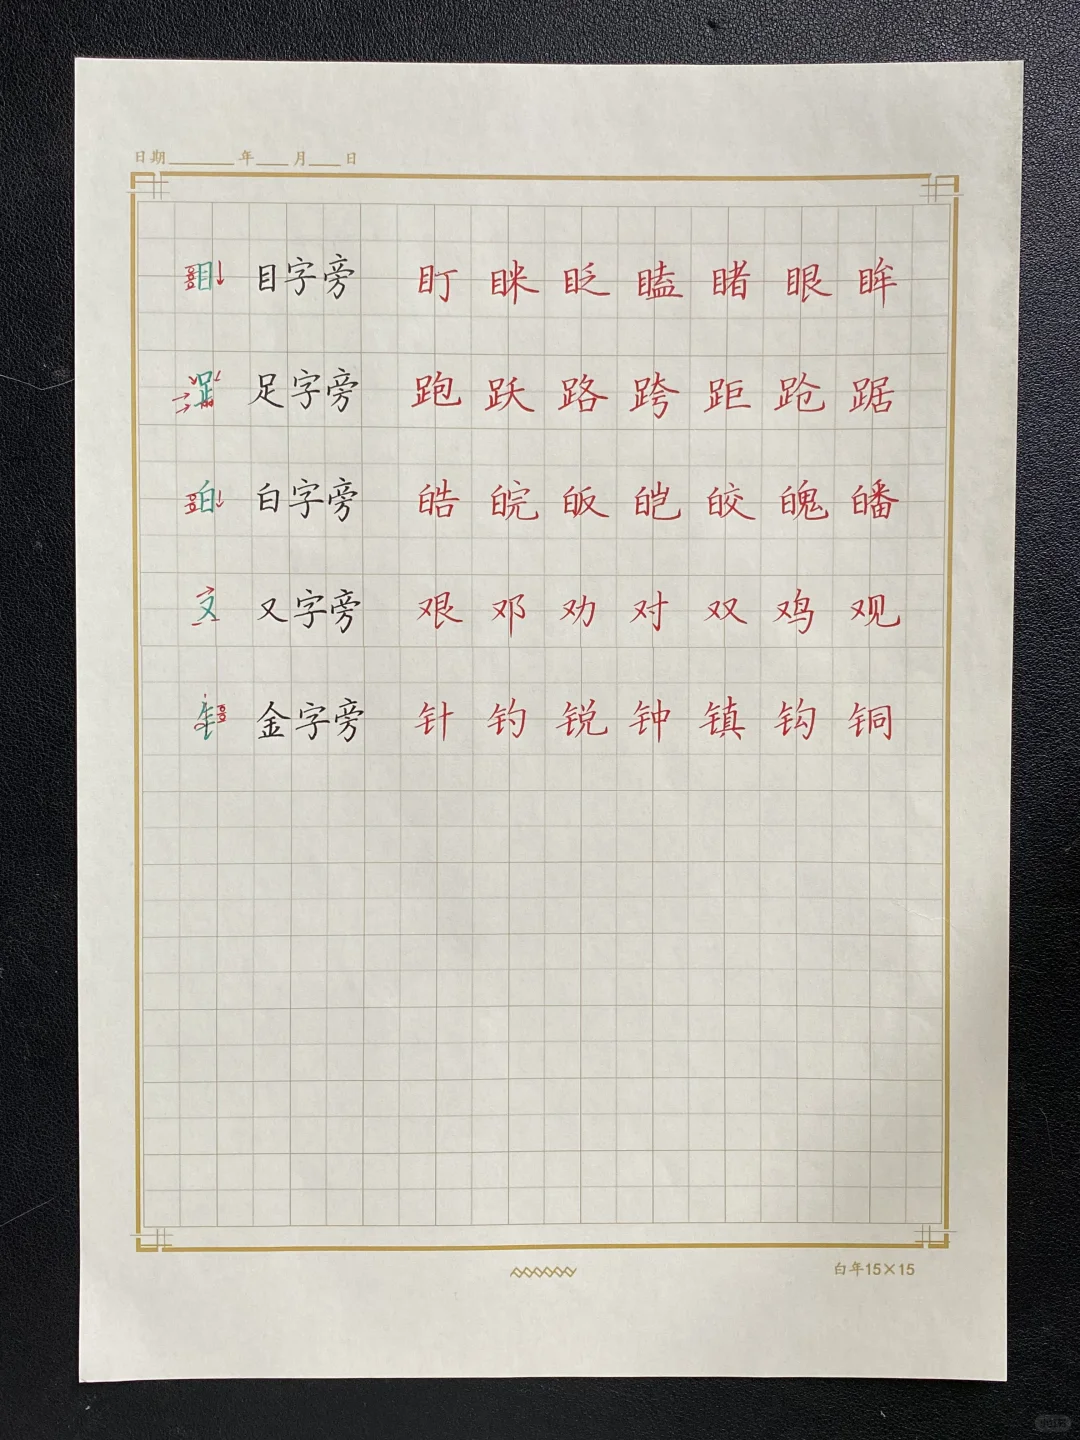 日期____年__月__日
目 目字旁 盯 眯 眨 瞌 睹 眼 眸
足字旁 跑 跃 路 跨 距 跄 踞
白 白字旁 皓 皖 皈 皑 皎 魄 皤
又 又字旁 艰 邓 劝 对 双 鸡 观
钅 金字旁 针 钓 锐 钟 镇 钩 铜
白年15×15
小红书